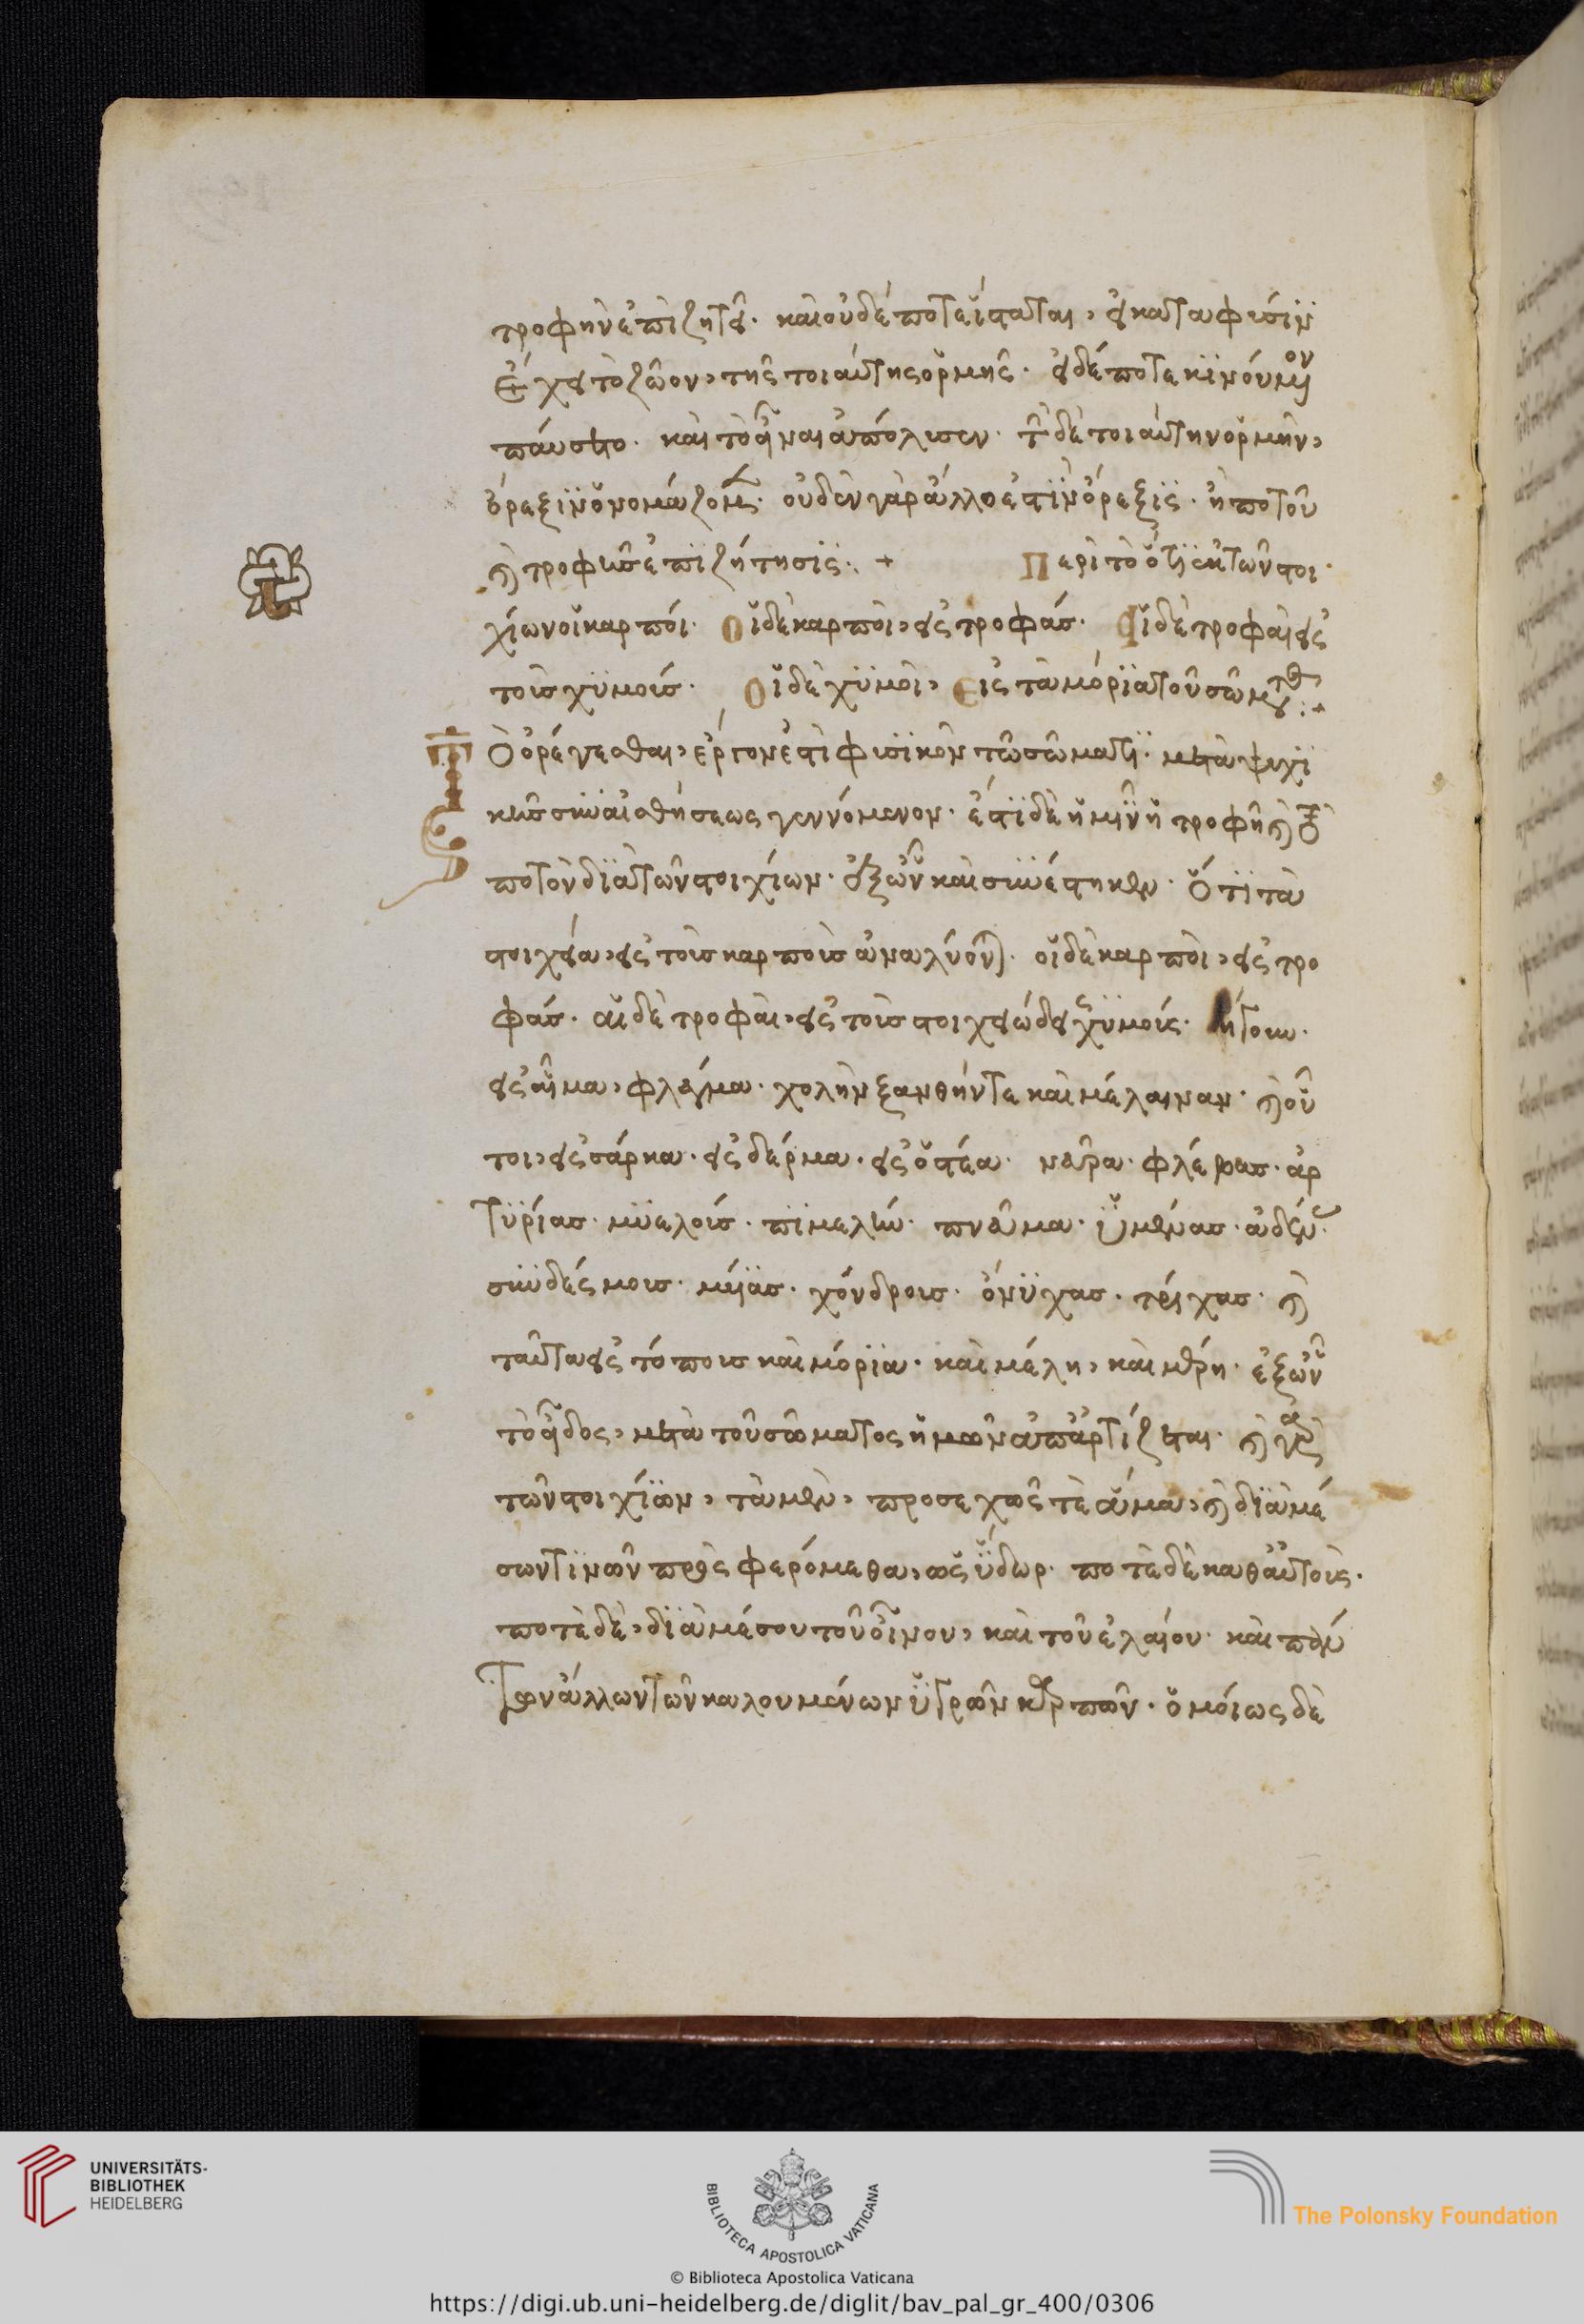 τροφὴν ἐπιζητεῖ· καὶ οὐδέποτε ἵσταται, εἰ κατὰ φύσιν
ἔχει τὸ ζῶον, τῆς τοιαύτης ὁρμῆς· εἰ δέ ποτε κινούμενον
παύσετο· καὶ τὸ εἶναι ἀπόλυσεν· τὴν δὲ τοιαύτην ὁρμὴν,
ὄρεξιν ὀνομάζομεν· οὐδὲν γὰρ ἄλλο ἐστὶν ὄρεξις· ἢ ποτοῦ
καὶ τροφῆς ἐπιζήτησις:+ Περὶ τὸ ὅτι ἐκ τῶν στοι
χίων οἱ καρποί· Οἱ δὲ καρποὶ, εἰς τροφάς· Αἱ δὲ τροφαὶ εἰς
τοὺς χυμούς· Οἱ δὲ χυμοὶ, εἰς τὰ μόρια τοῦ σώματος:+
Τὸ ὀρέγεσθαι, ἔργον ἐστὶ φυσικὸν τῶ σώματι· μετὰ ψυχι
κῆς συναισθήσεως γεννόμενον· ἔστι δὲ ἡμῖν ἡ τροφὴ καὶ τὸ
ποτὸν διὰ τῶν στοιχίων· ἐξ ὧν καὶ συνέστηκεν· ὅτι τὰ
στοιχεία, εἰς τοὺς καρποὺς ἀναλύονται· οἱ δὲ καρποὶ, εἰς τρο
φάς· αἱ δὲ τροφαὶ, εἰς τοὺς στοιχειώδεις χυμούς· ἤτοι·
εἰς αἷμα, φλέγμα· χολὴν ξανθήν τε καὶ μέλαιναν· καὶ οὗ
τοι, εἰς σάρκα· εἰς δέρμα· εἰς ὀστέα· νεῦρα· φλέβας· ἀρ
τυρίας· μυελούς· πιμελήν· πνεῦμα· ὑμένας· ἀδένας·
συνδέσμους· μύας· χόνδρους· ὄνυχας· τρίχας· καὶ
ταῦτα εἰς τόπους καὶ μόρια· καὶ μέλη, καὶ μέρη· ἐξ ὧν
τὸ εἶδος, μετὰ τοῦ σώματος ἡμῶν ἀπαρτίζεται· καὶ γὰρ
τῶν στοιχίων, τὰ μὲν, προσεχῶς τὲ ἅμα, καὶ διὰ μέ
σων τινῶν προσφερόμεθα, ὡς ὕδωρ· ποτὲ δὲ καθ' αὑτοῖς·
ποτὲ δὲ, διὰ μέσου τοῦ οἴνου, καὶ τοῦ ἐλαίου· καὶ πάν
των ἄλλων τῶν καλουμένων ὑγρῶν καρπῶν· ὁμοίως δὲ
UNIVERSITÄTS-
BIBLIOTHEK
HEIDELBERG
BIBLIOTECA APOSTOLICA VATICANA
The Polonsky Foundation
© Biblioteca Apostolica Vaticana
https://digi.ub.uni-heidelberg.de/diglit/bav_pal_gr_400/0306